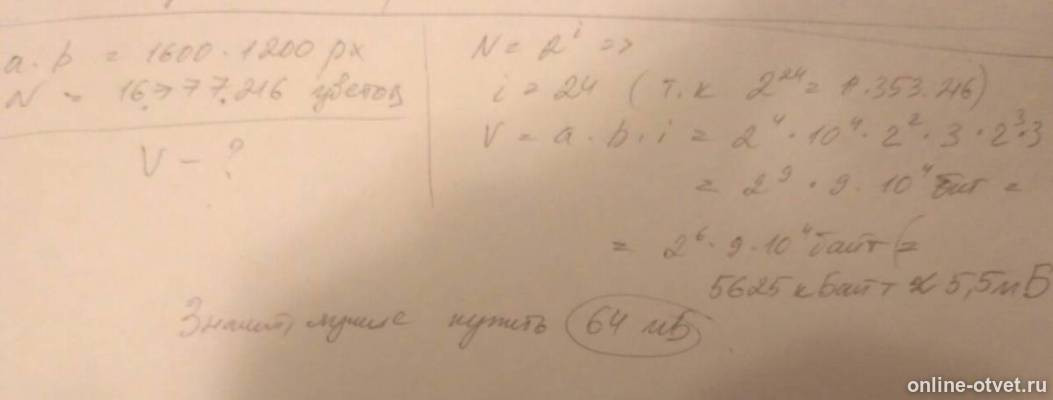 a · b = 1600 · 1200 px
N = 16.777.216 цветов
V - ?
N = 2^i =>
i = 24 (т.к 2^24 =
V = a · b · i = 2^4 · 10^4 · 2^2 · 3 · 2^3 · 3
= 2^9 · 9 · 10^4 бит =
= 2^6 · 9 · 10^4 байт (=
5625 кБайт ≈ 5,5 мБ
Значит, лучше купить 64 мБ
online-otvet.ru